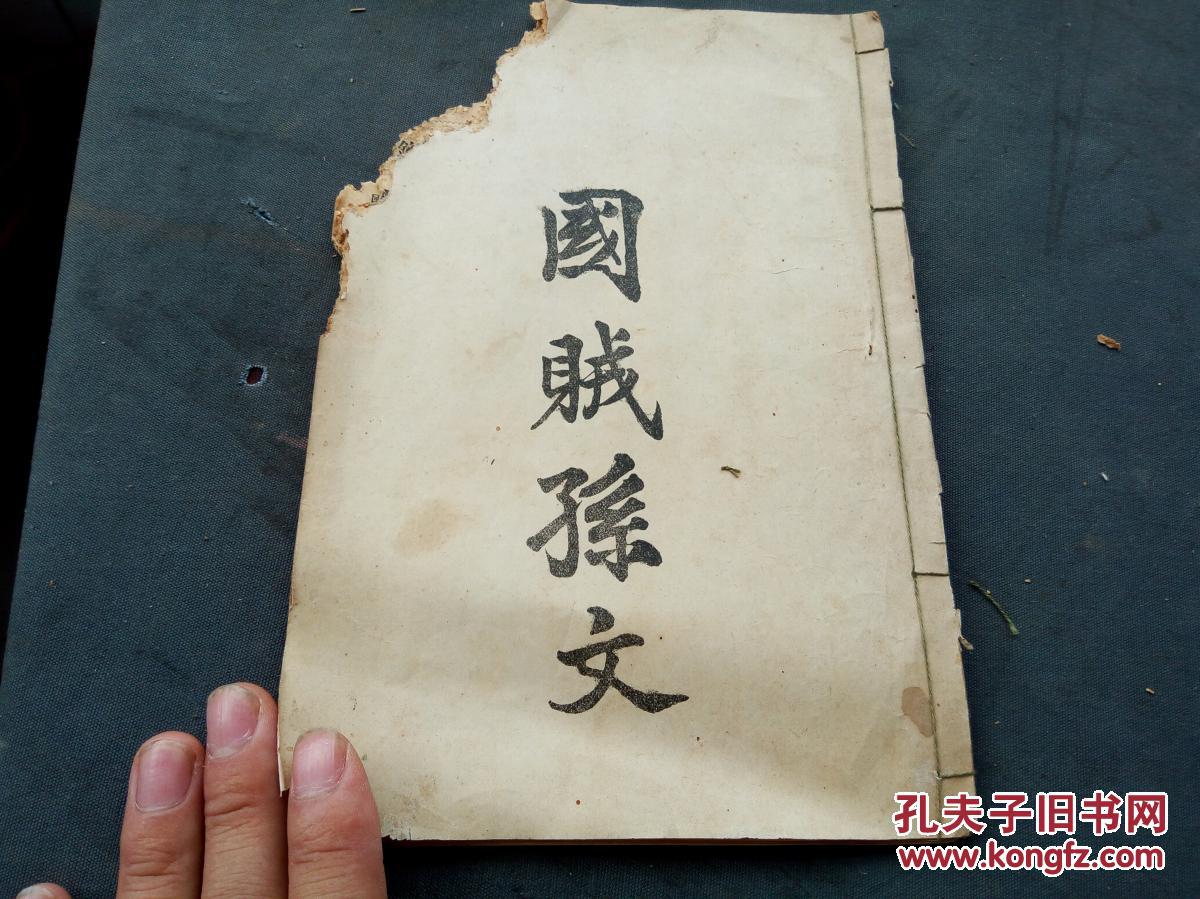 國賊孫文
孔夫子旧书网
www.kongfz.com